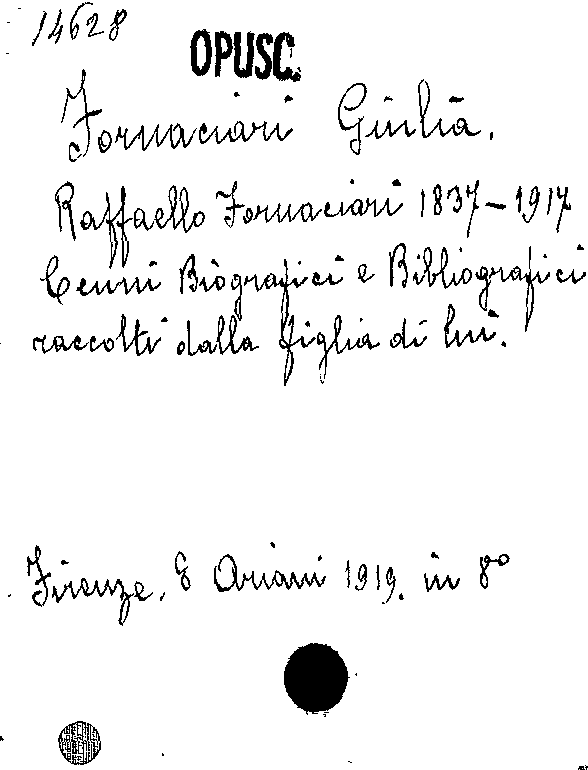 14628
OPUSC.
Fornaciari Giulia.
Raffaello Fornaciari 1837-1917
Cenni Biografici e Bibliografici
raccolti dalla figlia di lui.
Firenze. E Ariani 1919. in 8°